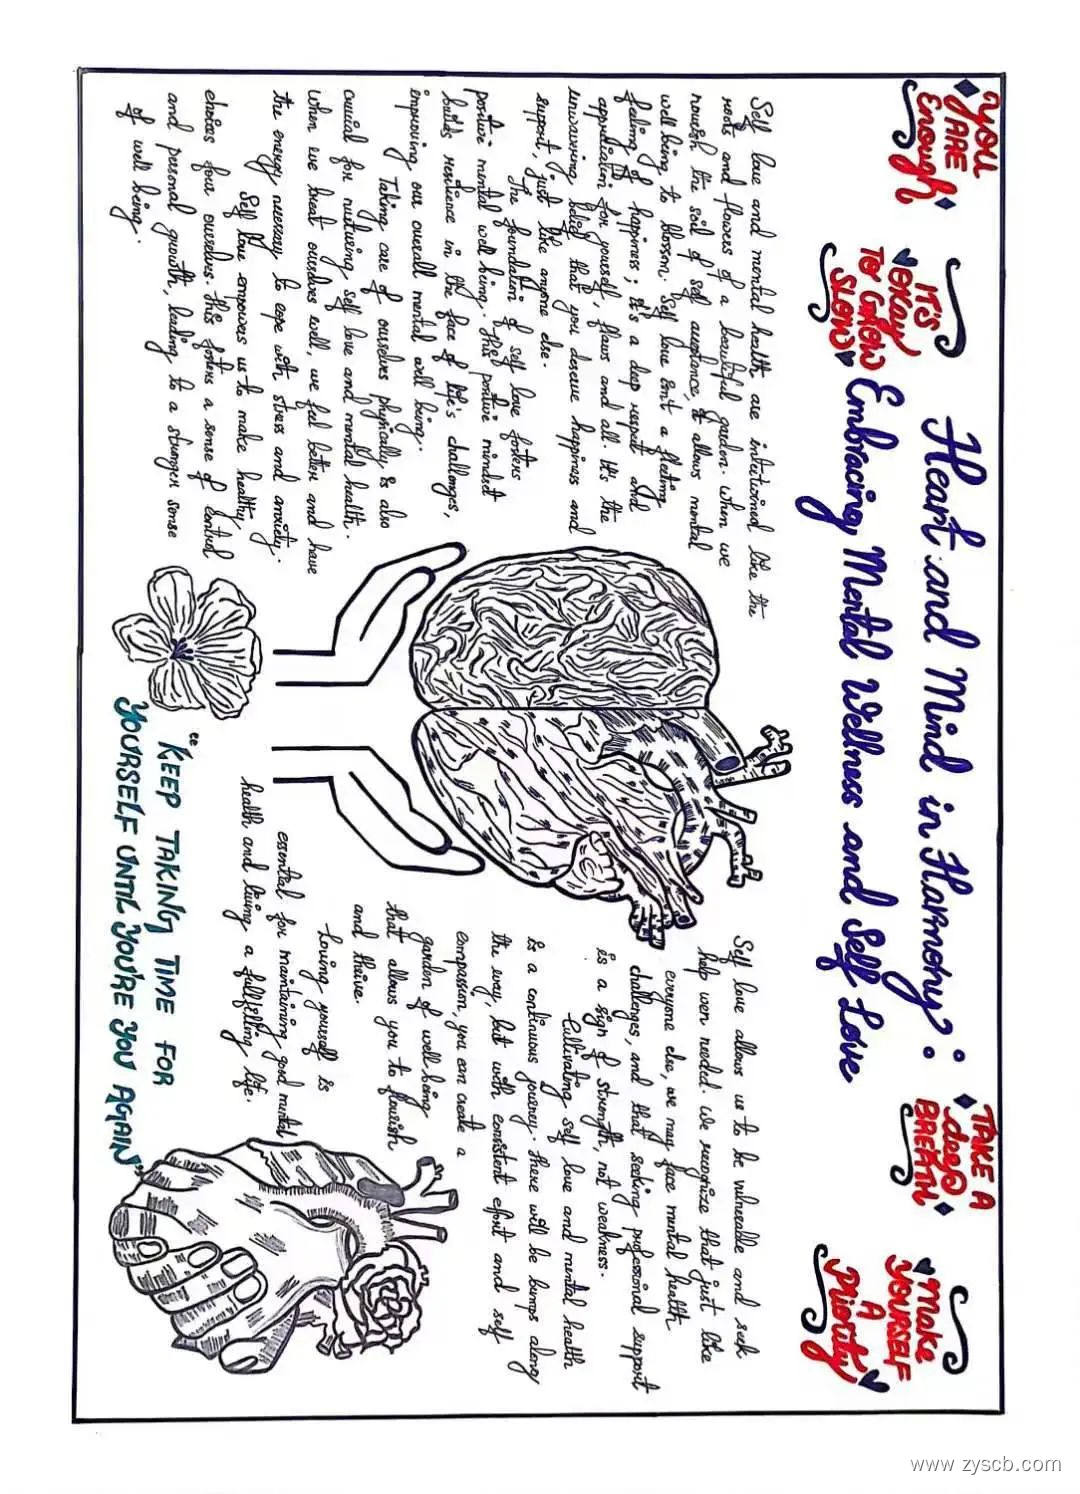 YOU
ARE
Enough
IT'S
OKAY
TO GROW
SLOW
Heart and Mind in Harmony:
Embracing Mental Wellness and Self Love
TAKE A
deep
BREATH
Make
YOURSELF
A
Priority
Self love and mental health are intertwined like the
roots and flowers of a beautiful garden. When we
nourish the soil of self acceptance, it allows mental
well being to blossom. Self love isn't a fleeting
feeling of happiness; it's a deep respect and
appreciation for yourself, flaws and all. It's the
unwavering belief that you deserve happiness and
support, just like anyone else.
The foundation of self love fosters
positive mental well being. This positive mindset
builds resilience in the face of life's challenges,
improving our overall mental well being.
Taking care of ourselves physically is also
crucial for nurturing self love and mental health.
When we treat ourselves well, we feel better and have
the energy necessary to cope with stress and anxiety.
Self love empowers us to make healthy
choices four ourselves. This fosters a sense of control
and personal growth, leading to a stronger sense
of well being.
Self love allows us to be vulnerable and seek
help wen needed. We recognize that just like
everyone else, we may face mental health
challenges, and that seeking professional support
is a sign of strength, not weakness.
Cultivating self love and mental health
is a continuous journey. There will be bumps along
the way, but with consistent effort and self
compassion, you can create a
garden of well being
that allows you to flourish
and thrive.
Loving yourself is
essential for maintaining good mental
health and living a fulfilling life.
"KEEP TAKING TIME FOR
YOURSELF UNTIL YOU'RE YOU AGAIN"
www.zyscb.com